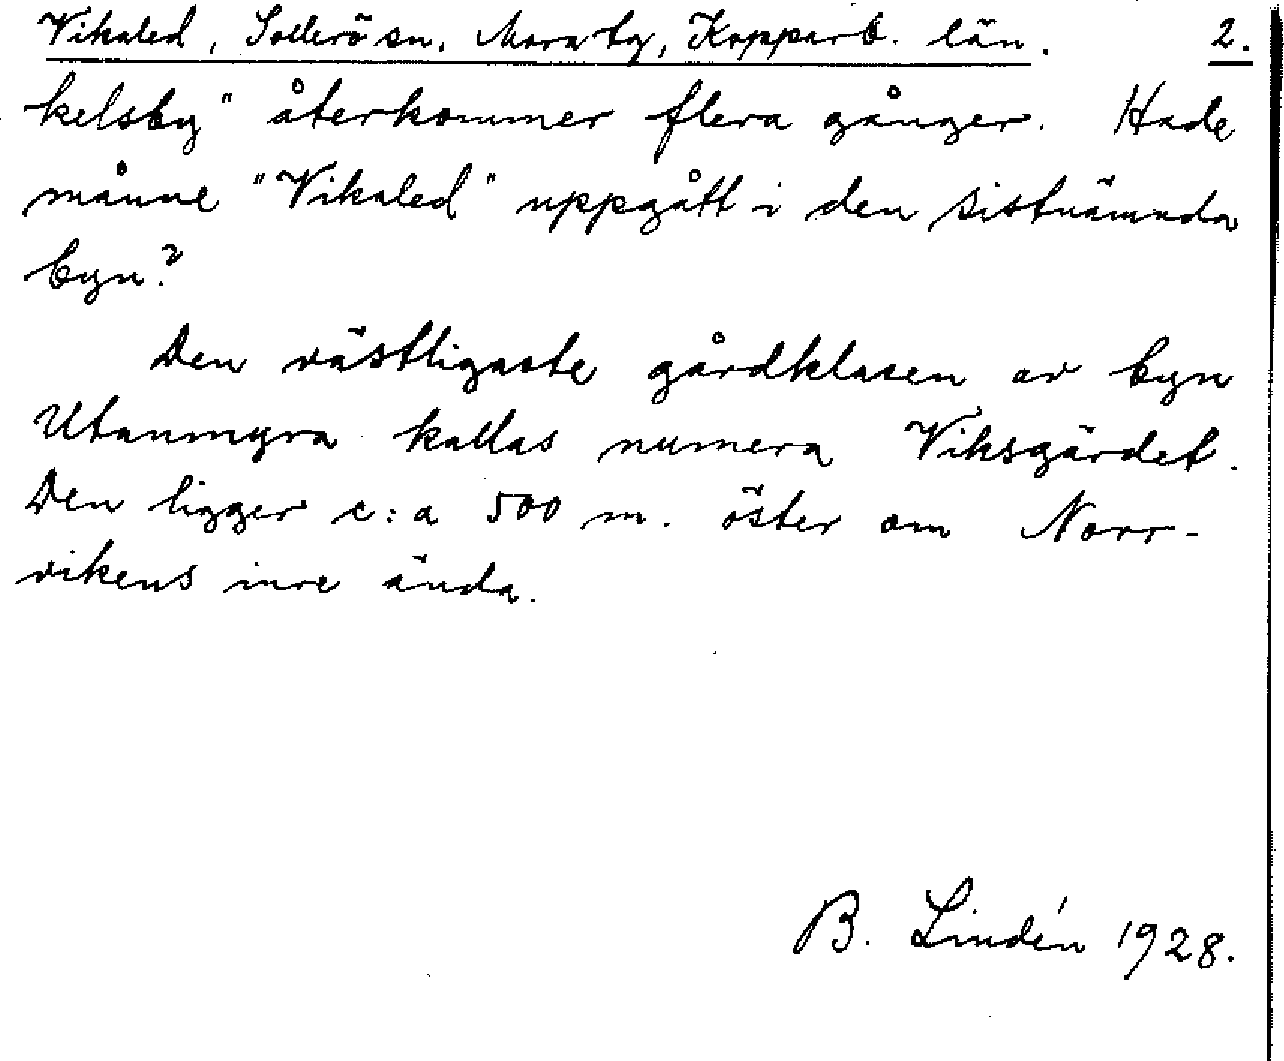 Vikaled, Sollerö sn, Mora tg, Kopparb. län. 2.
kelsby" återkommer flera gånger. Hade
månne "Vikaled" uppgått i den sistnämnda
byn?
Den västligaste gårdklasen av byn
Utanmyra kallas numera Viksgärdet.
Den ligger c:a 500 m. öster om Norr-
vikens inre ända.
B. Lindén 1928.